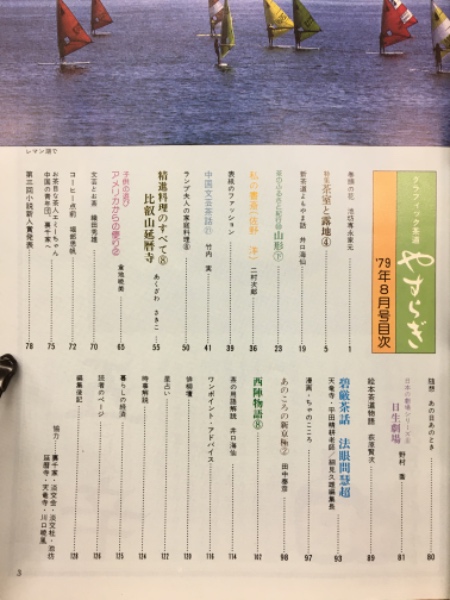 レマン湖で
グラフィック茶道
やすらぎ
'79年8月号目次
巻頭の花 池坊専永家元 1
新の花よもやま話 井口海仙 5
茶室と露地④ 19
山形㊦ 23
私の書斎(佐野 洋) 二村次郎 36
表紙のファッション 39
中国文芸茶話㉑ 竹内 実 41
ランプ夫人の家庭料理⑧ 50
精進料理のすべて⑧
比叡山延暦寺 あくざわ さきこ 55
千宗の送り
アメリカからの便り② 倉地暁美 65
文芸とお茶 織田克雄 70
コーヒー点前 堀部恵帆 72
お茶目な茶人エイ子ちゃん
中国の青年団、裏千家へ 75
第三回小説新人賞発表 78
随想 あの日あのとき 80
日本の劇場シリーズ⑧
日生劇場 野村 喬 81
絵本茶道物語 萩原賢次 89
碧厳茶話 法眼問慧超
天竜寺・平田精耕老師/細見久雄編集長 93
漫画・ちゃのこころ 97
あのころの新京極② 田中泰彦 98
西陣物語⑧ 102
茶の用語解説 井口海仙 114
ワンポイント・アドバイス 116
俳檀 120
星占い 122
時事解説 124
暮らしの経済 125
読者のページ 126
編集後記 128
協力・裏千家・淡交会・淡交社・池坊
延暦寺・天竜寺・川口暁風
3